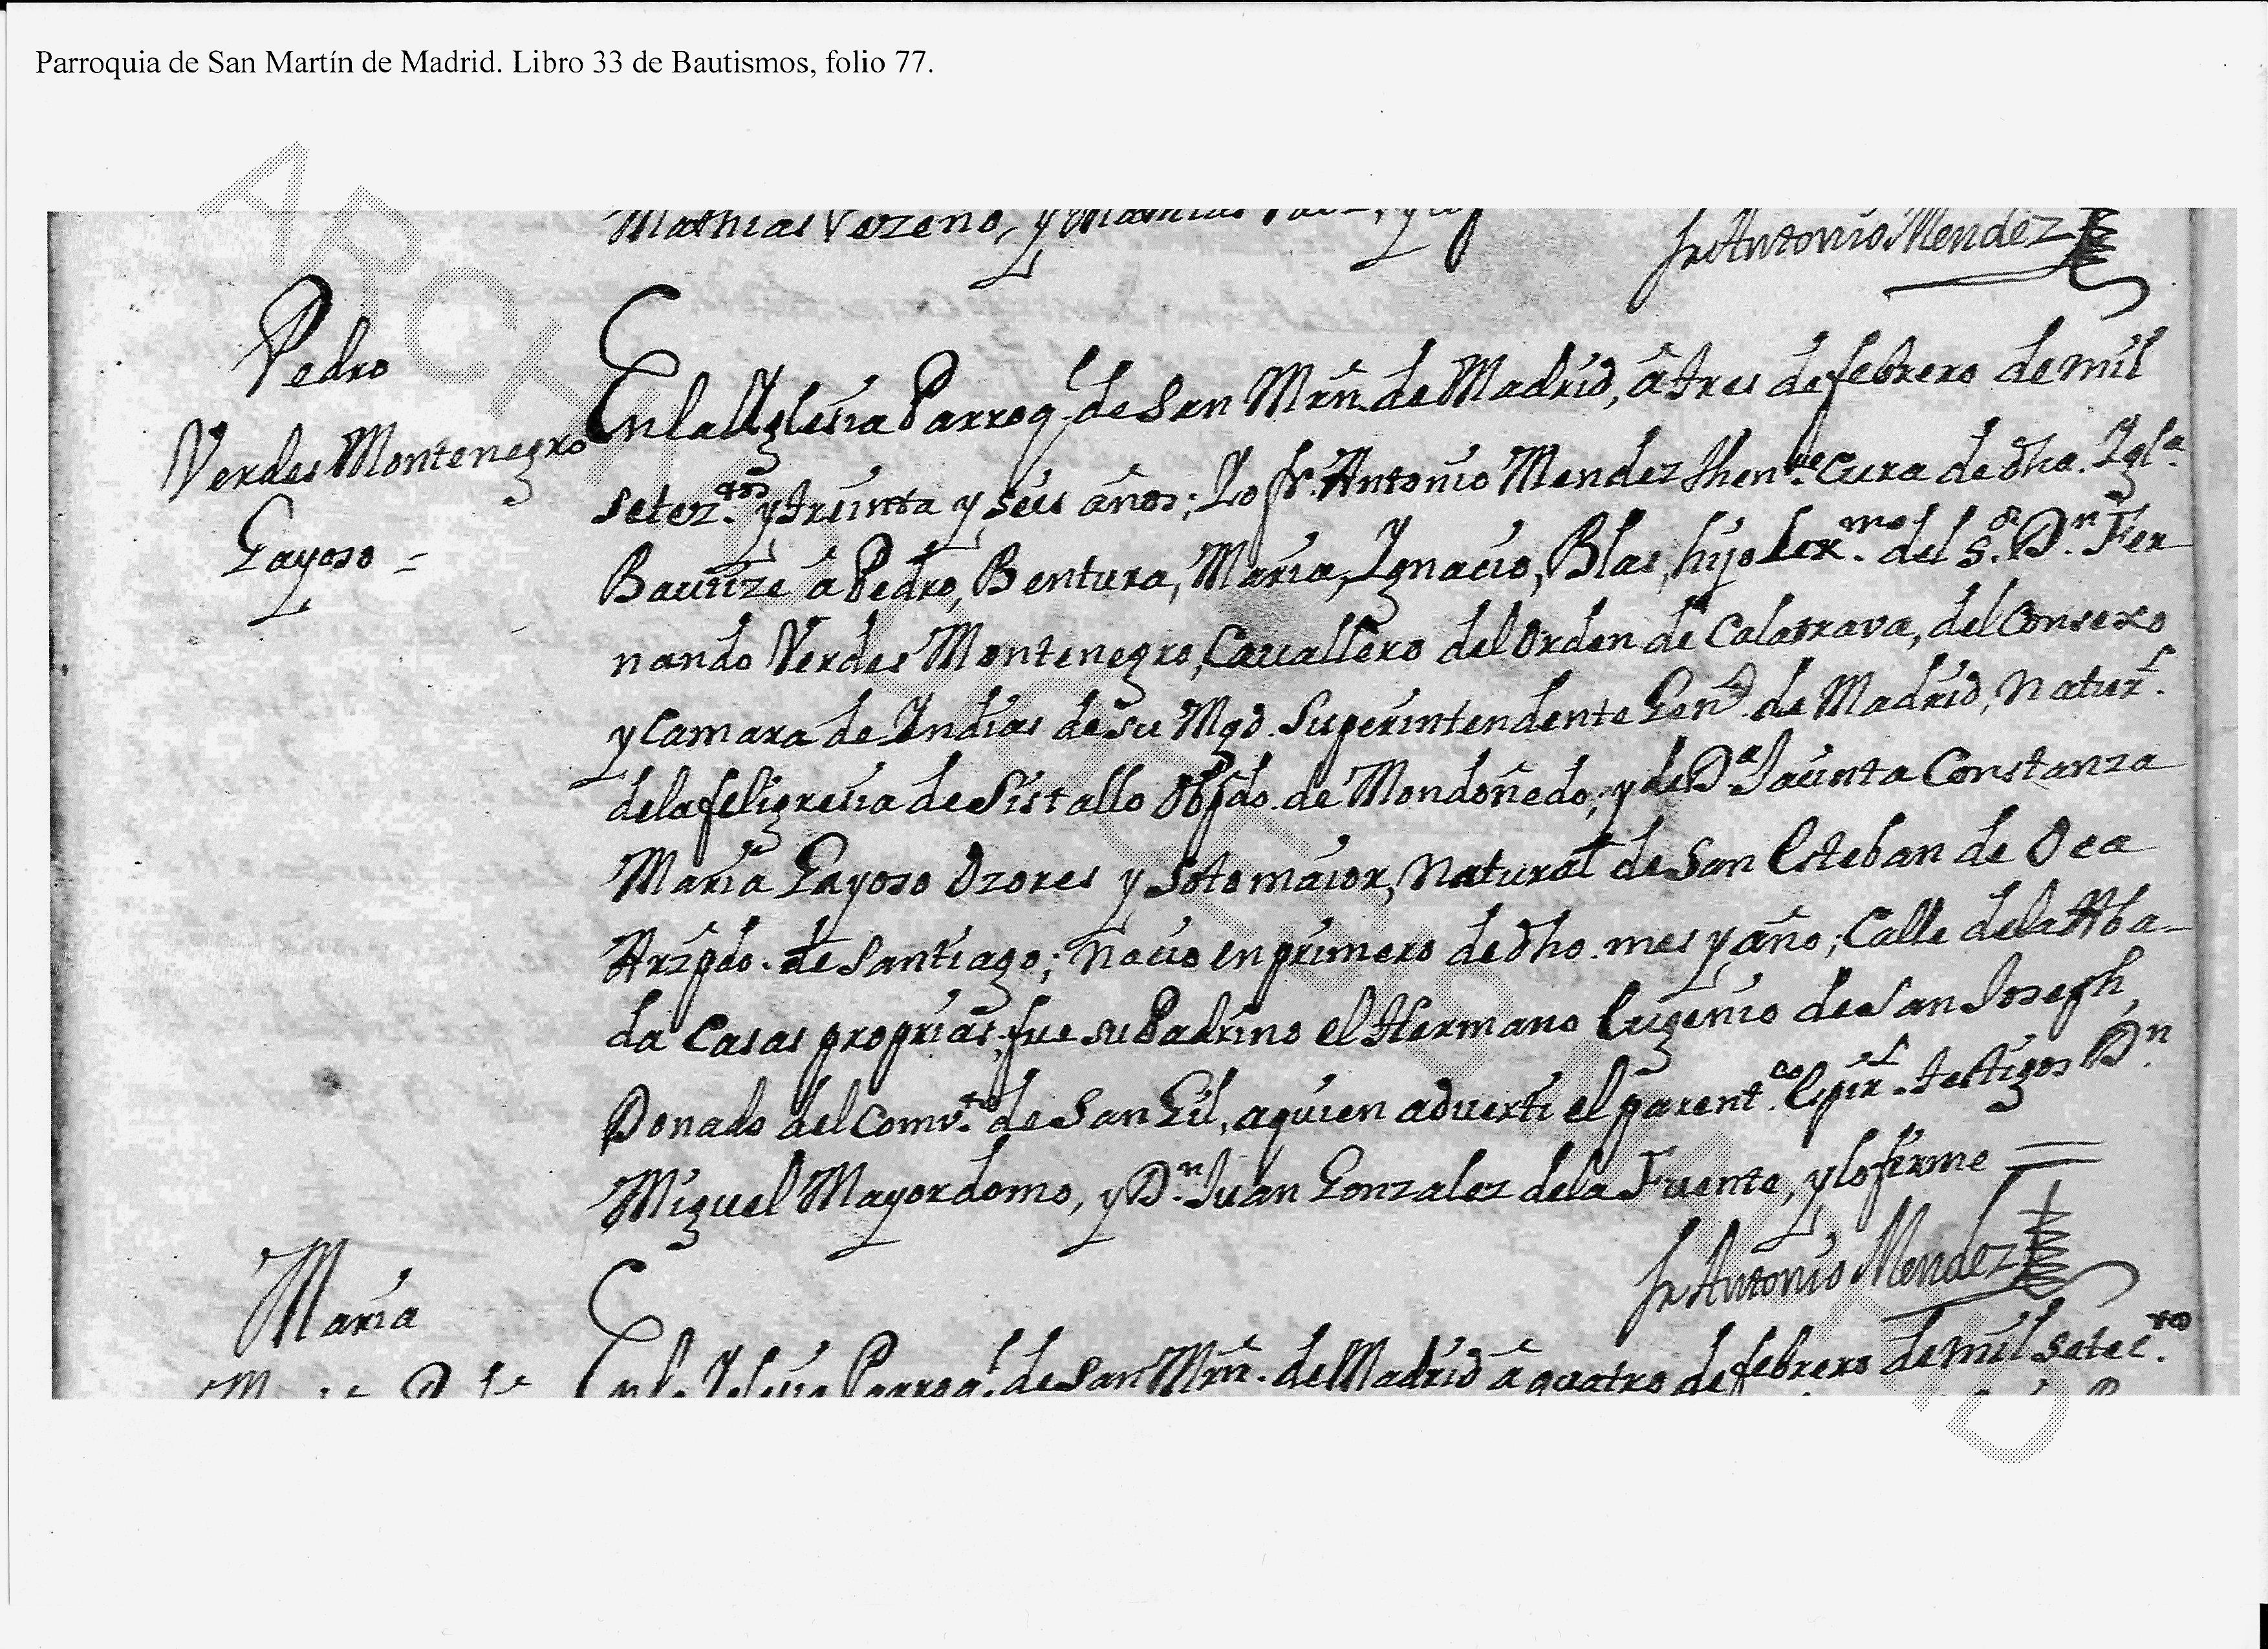 Parroquia de San Martín de Madrid. Libro 33 de Bautismos, folio 77.
Mathias Vozeno, y Mathias
fr Antonio Mendez
Pedro
Verdes Montenegro
Gayoso =
En la Yglesia Parroq.l de San Mrn. de Madrid, â tres de febrero de mil
setez.tos y treinta y seis años; Yo fr. Antonio Mendez Then.te Cura de dha. Igl.a
Bautize â Pedro, Bentura, Maria, Ygnacio, Blas, hijo lex.mo del S.or D.n Fer
nando Verdes Montenegro, Cavallero del Orden de Calatrava, del Consexo
y Camara de Yndias de su Mgd. Superintendente Gen.l de Madrid, Natur.l
de la feligresia de Sistallo Obpdo. de Mondoñedo, y de D.a Jacinta Constanza
Maria Gayoso Ozores y Sotomaior, Natural de San Esteban de Oca
Arzpdo. de Santiago; nacio en primero de dho. mes y año; Calle de la Aba-
da Casas proprias, fue su Padrino el Hermano Eugenio de San Joseph,
Donado del Comv.to de San Gil, a quien adverti el parent.co Espir.l testigos D.n
Miguel Mayordomo, y D.n Juan Gonzalez de la Fuente, y lo firme =
fr Antonio Mendez
Maria
En la Yglesia Parroq.l de San Mrn. de Madrid â quatro de febrero de mil setec.tos
ARCHIVO